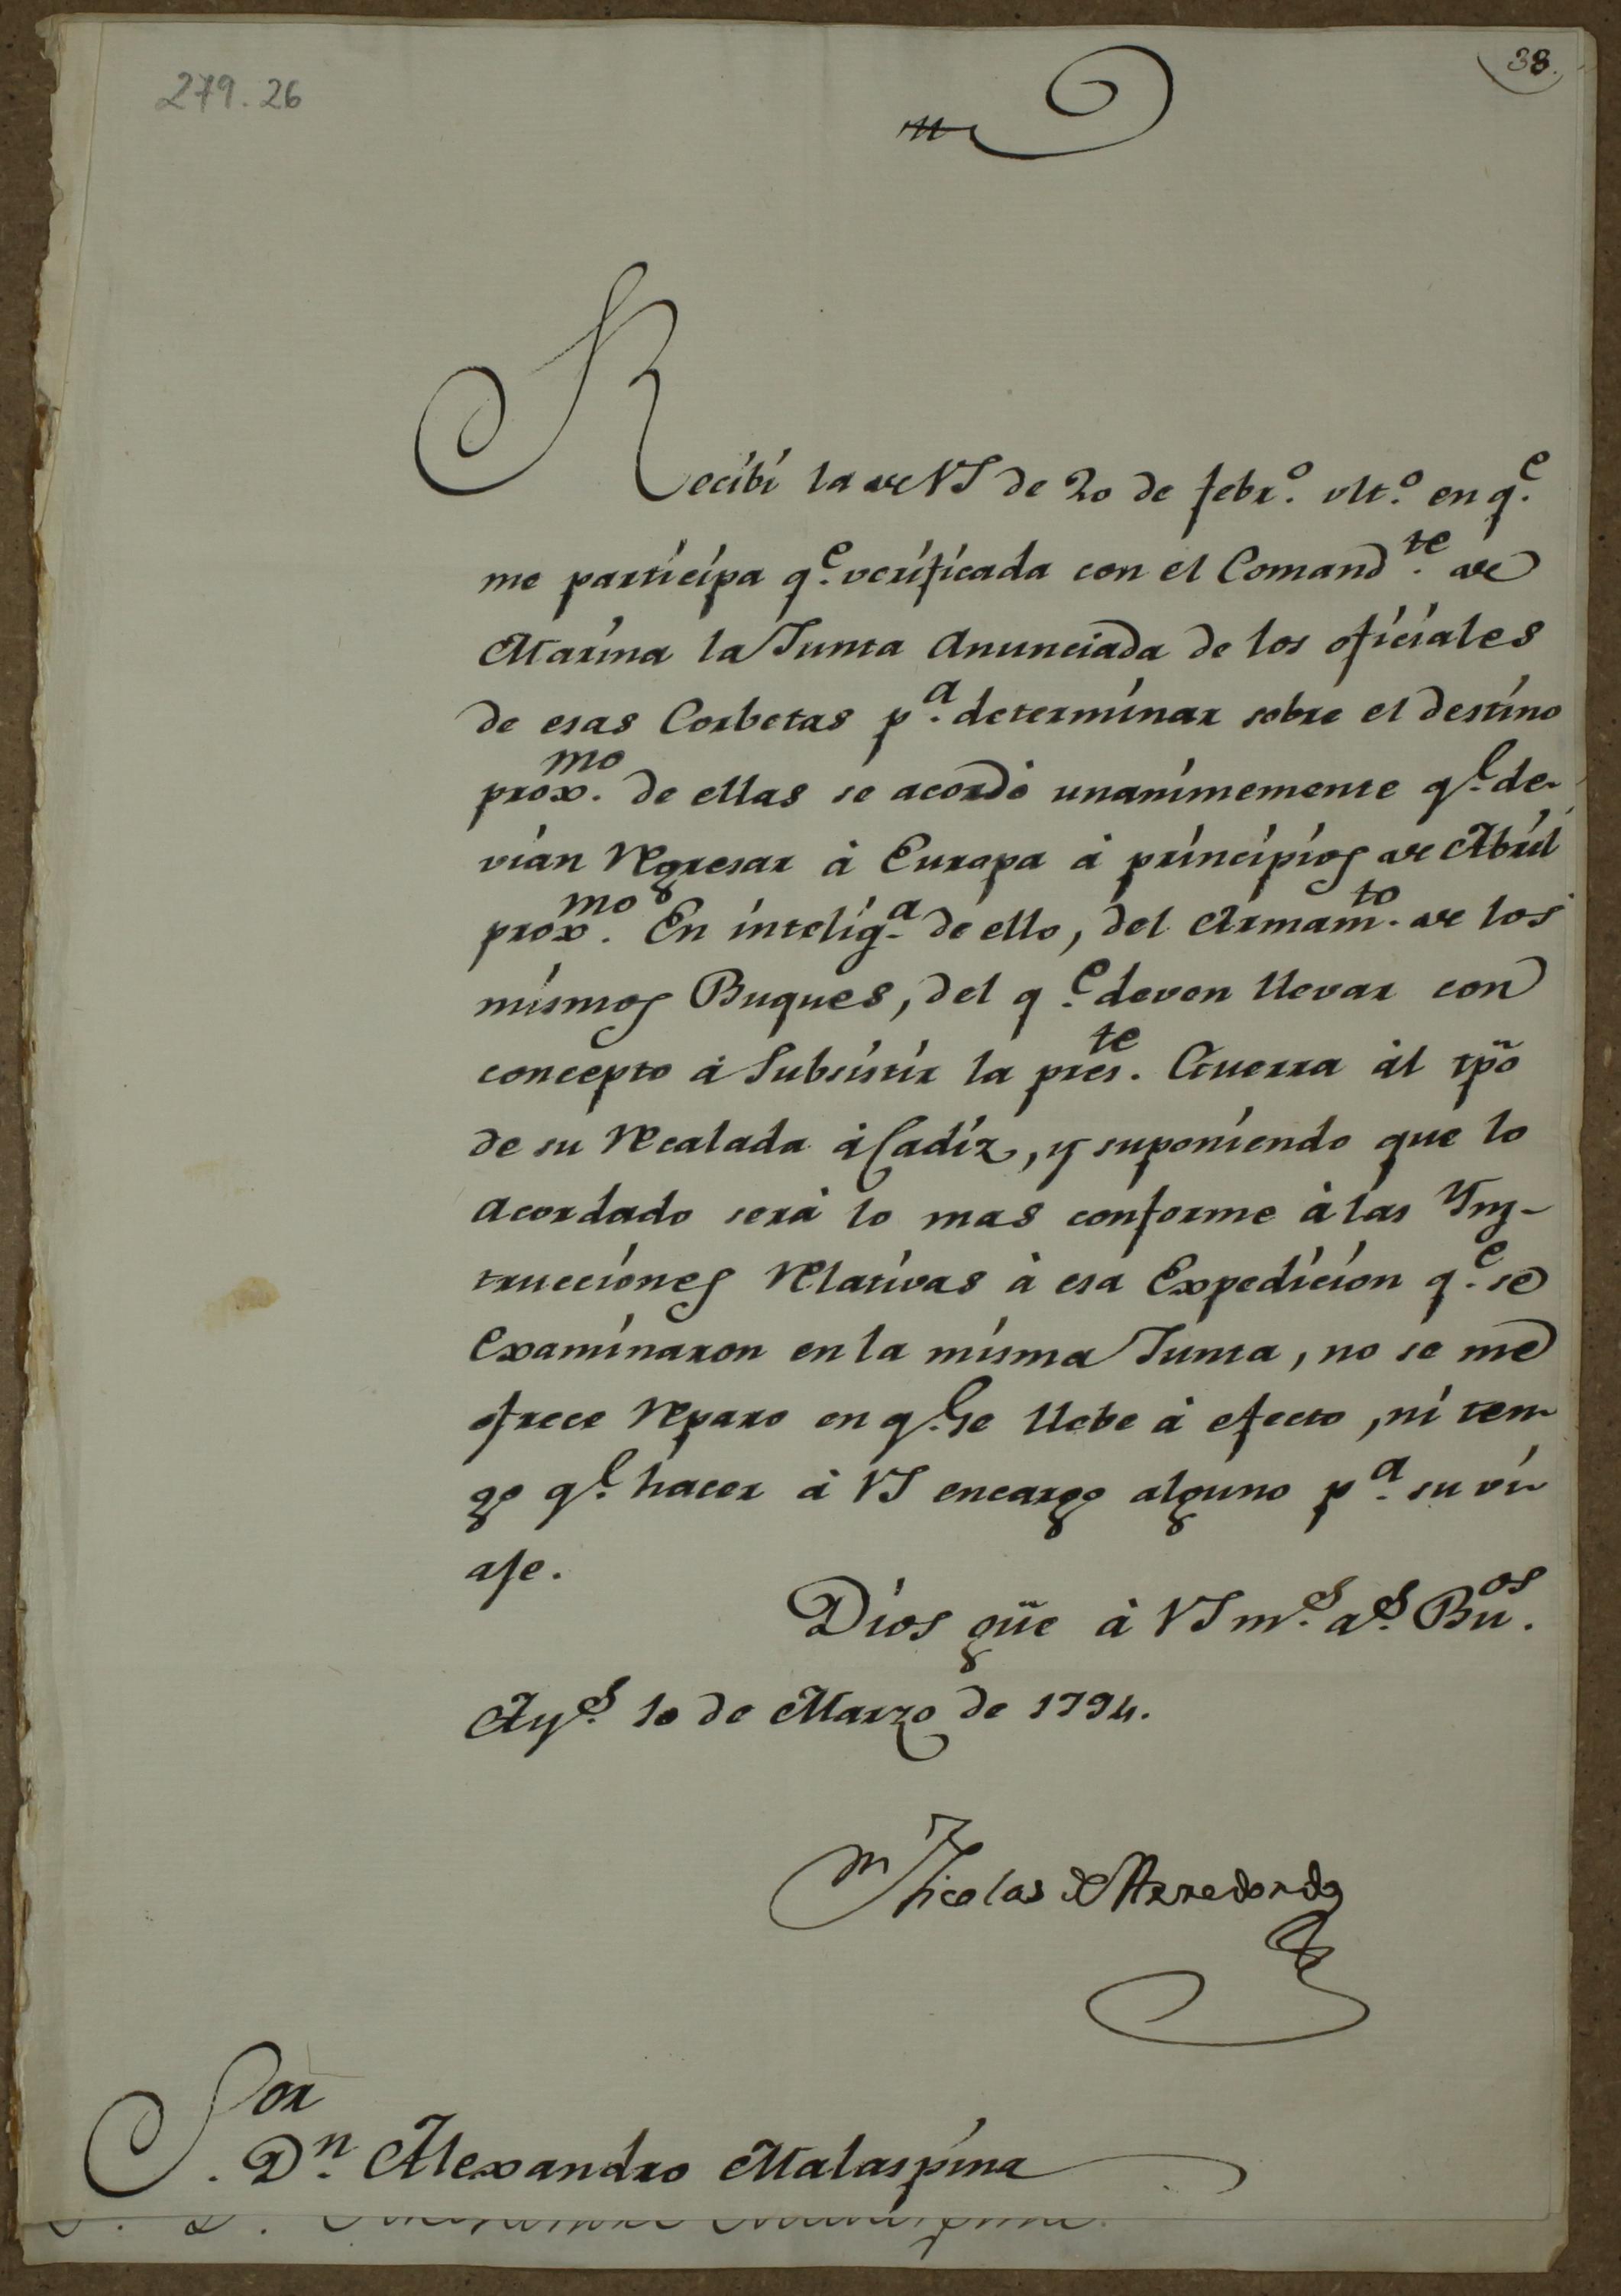 279.26
38.
Recibí la de VS de 20 de febr.º ult.º en q.e
me participa q.e verificada con el Comand.te de
Marina la Junta Anunciada de los oficiales
de esas Corbetas p.a determinar sobre el destino
prox.mo de ellas se acordó unanimemente q.e de-
vian Regresar à Europa à principios de Abril
prox.mo En intelig.a de ello, del Armam.to de los
mismos Buques, del q.e deven llevar con
concepto à Subsistir la pres.te Guerra àl tpõ
de su Recalada à Cadiz, y suponiendo que lo
Acordado serà lo mas conforme à las Yns-
trucciones Relativas à esa Expedicion q.e se
Examinaron en la misma Junta, no se me
ofrece Reparo en q.e se llebe à efecto, ni ten-
go q.e hacer à VS encargo alguno p.a su vi-
aje.
Dios güe à VS m.s a.s Bu.os
Ay.s 10 de Marzo de 1794.
Nicolas de Arredondo
Sor
D.n Alexandro Malaspina